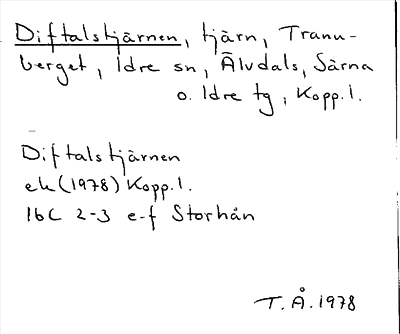 Diftalstjärnen, tjärn, Tranu-
berget, Idre sn, Älvdals, Särna
o. Idre tg, Kopp. l.
Diftalstjärnen
ek (1978) Kopp. l.
16C 2-3 e-f Storhån
T. Å. 1978